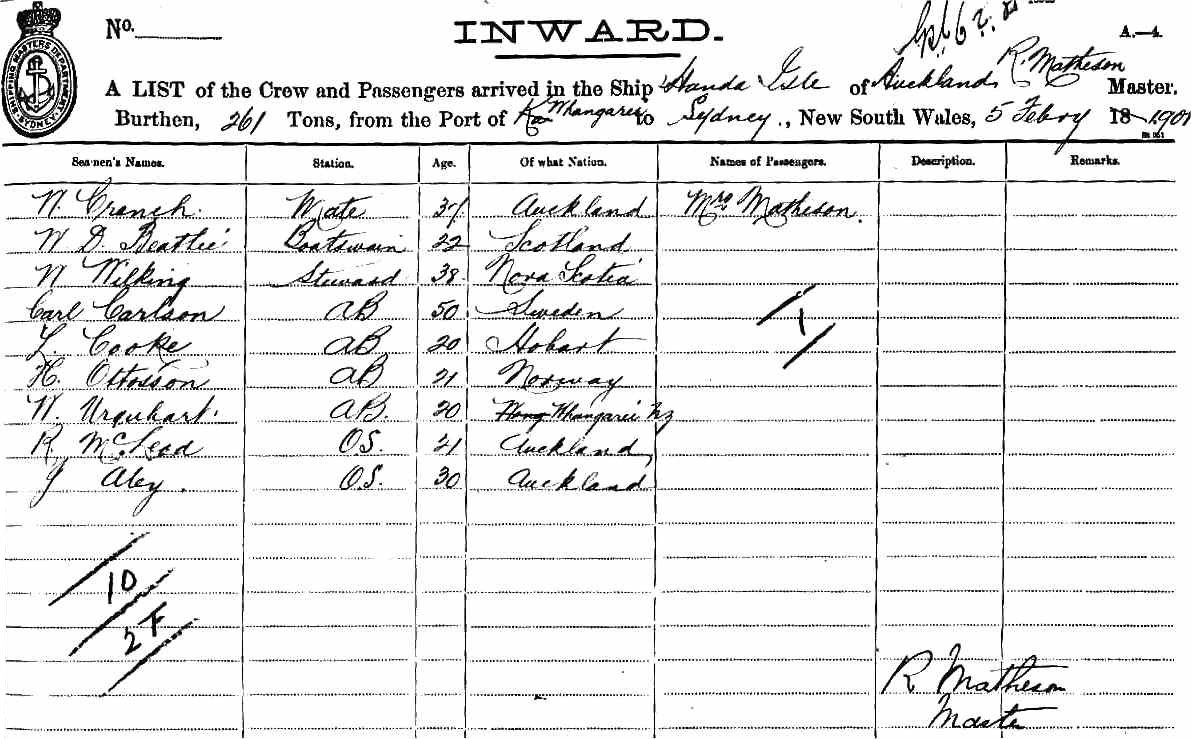 No.
INWARD.
A.—4.
SHIPPING MASTERS DEPARTMENT SYDNEY
A LIST of the Crew and Passengers arrived in the Ship Handa Isle of Auckland, R. Matheson Master.
Burthen, 261 Tons, from the Port of Whangarei to Sydney, New South Wales, 5 Febry 18 1901
Seamen's Names. Station. Age. Of what Nation. Names of Passengers. Description. Remarks.
N. Cranch. Mate 37 Auckland Mrs Matheson.
W D. Beattie Boatswain 22 Scotland
N Wilking Steward 38 Nova Scotia
Carl Carlson AB 50 Sweden
L. Cooke AB 20 Hobart
H. Ottosson AB 21 Norway
W. Urquhart AB. 20 Whangarei NZ
R. McLeod OS. 21 Auckland
J Aley. OS. 30 Auckland
1
10
2 F
R Matheson
Master